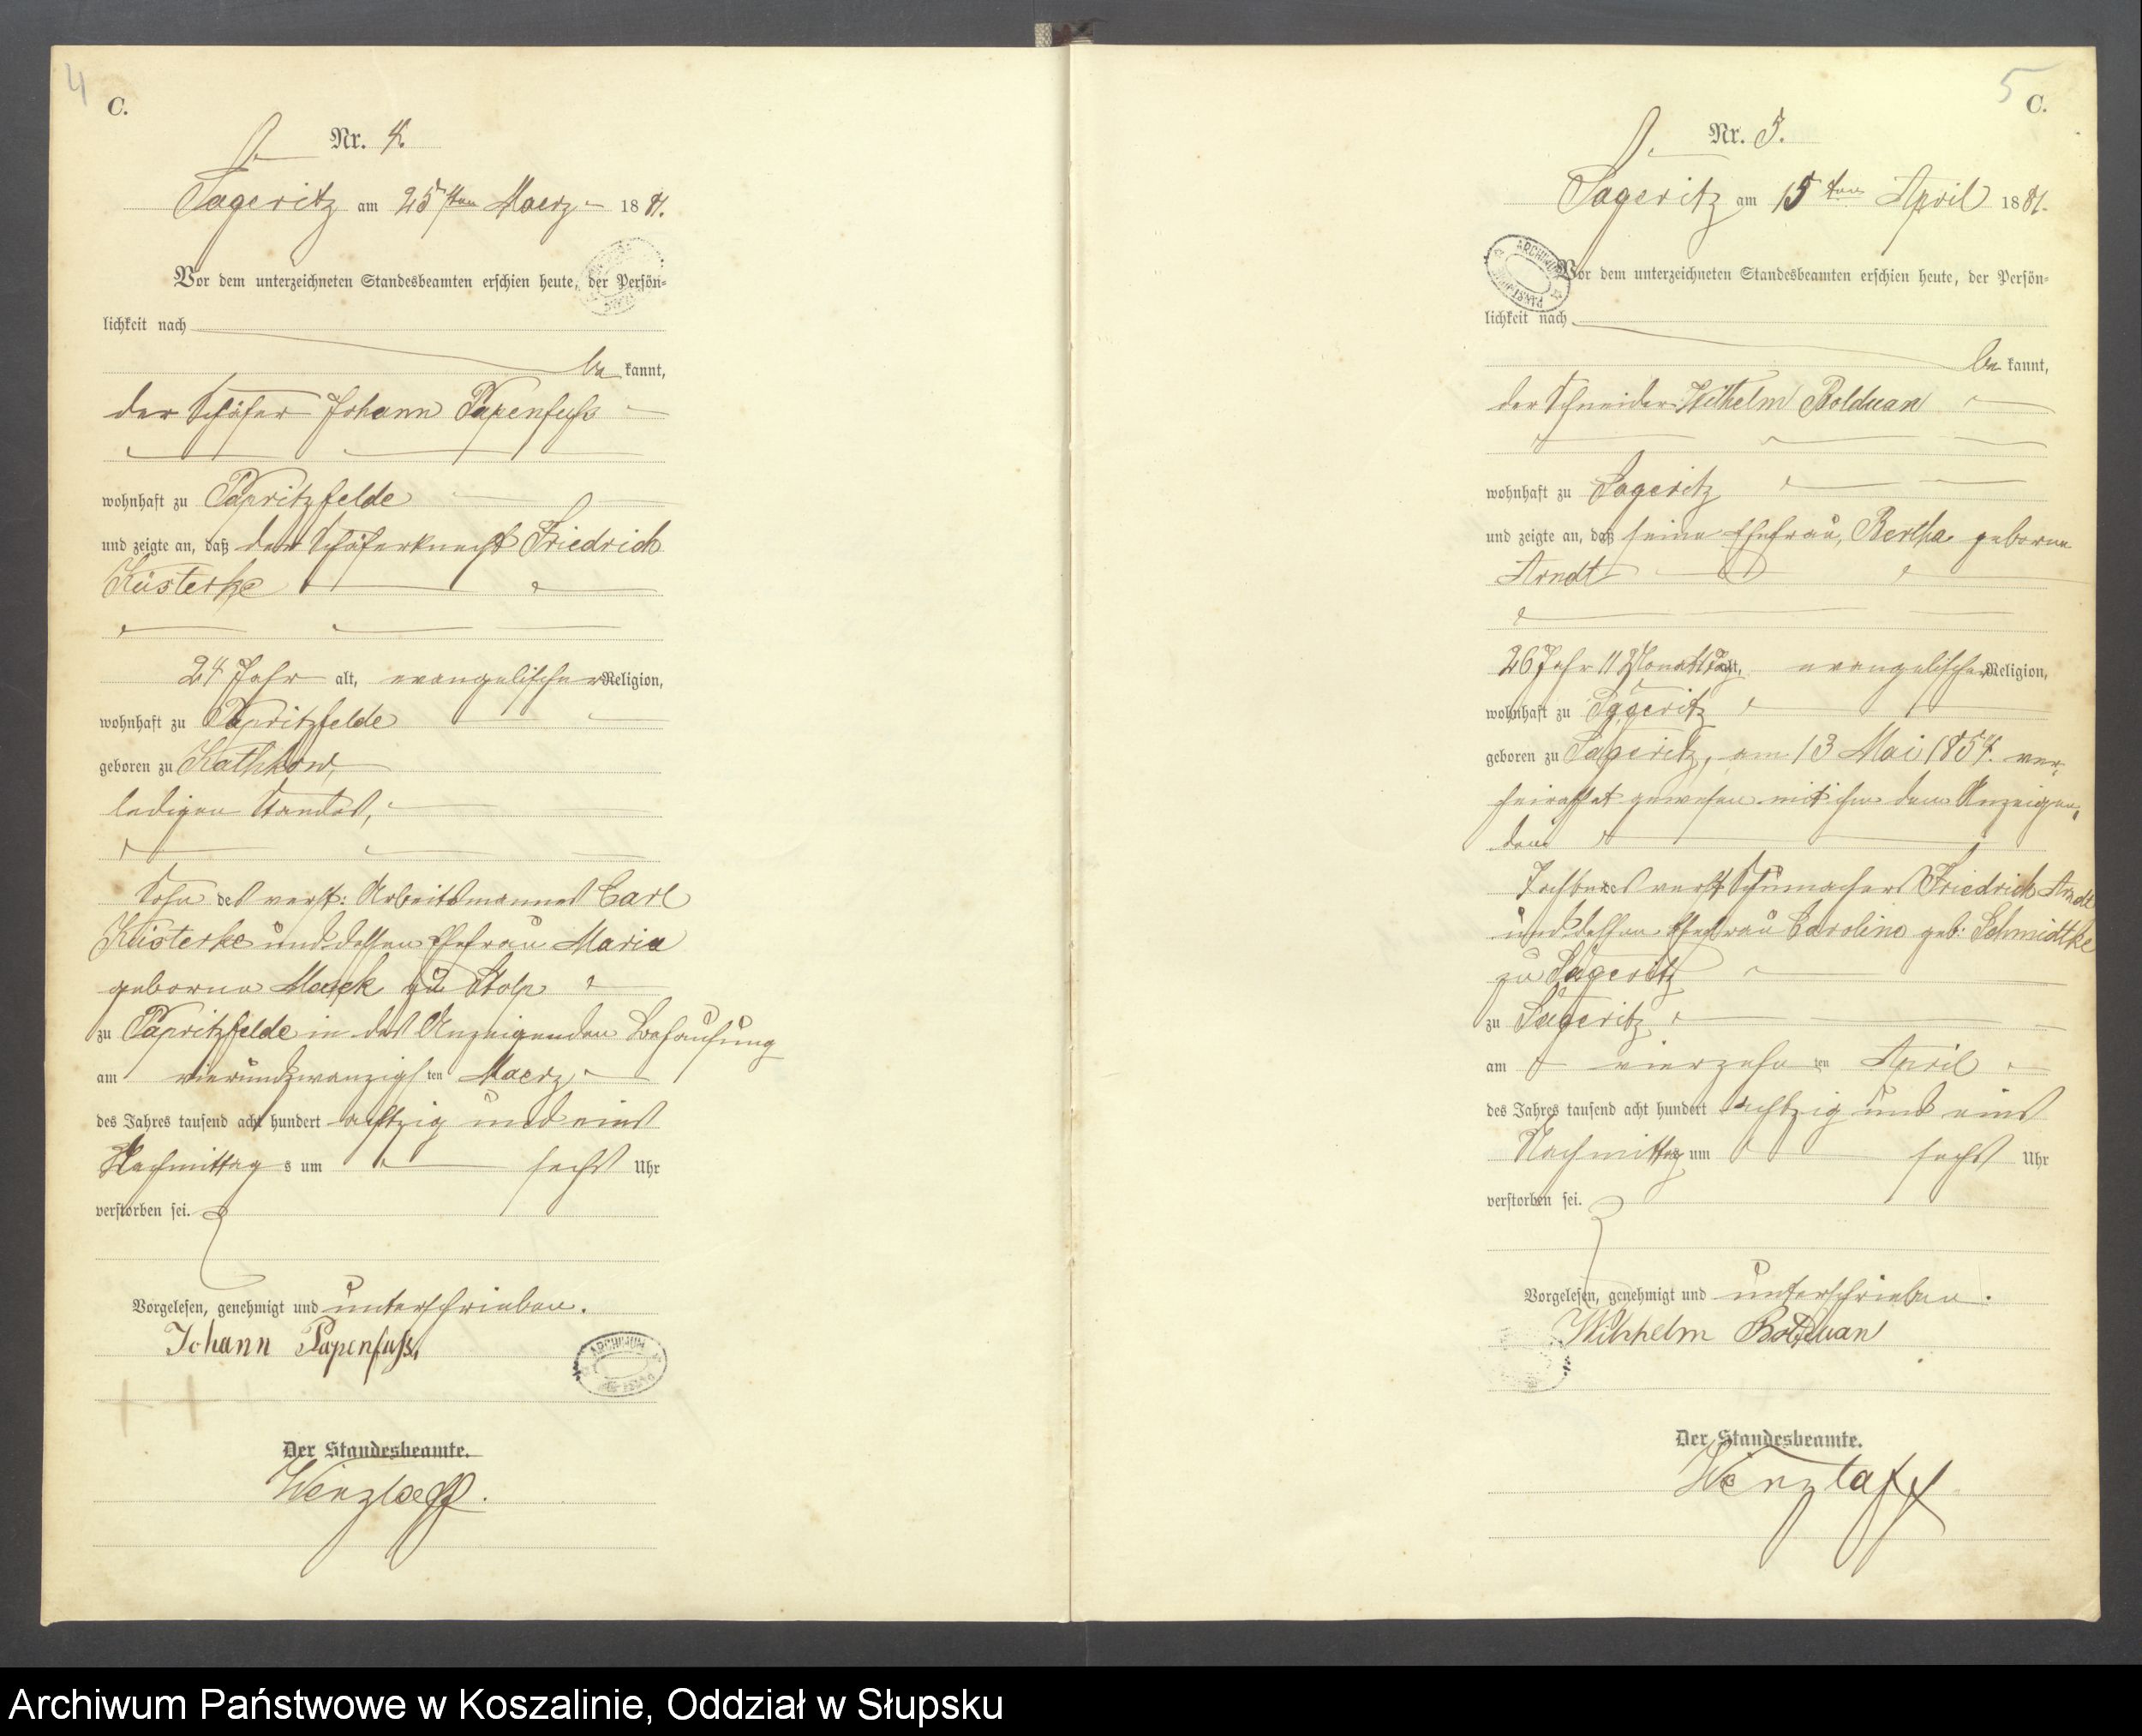 4
C.
Nr. 4.
Sageritz am 25ten Maerz 1881.
Vor dem unterzeichneten Standesbeamten erschien heute, der Persön-
lichkeit nach
be kannt,
der Schäfer Johann Papenfuss
wohnhaft zu Papritzfelde
und zeigte an, daß der Schäferknecht Friedrich
Küsterke
24 Jahr alt, evangelischer Religion,
wohnhaft zu Papritzfelde
geboren zu Kathkow,
ledigen Standes,
Sohn des verst: Arbeitsmannes Carl
Küsterke und dessen Ehefrau Maria
geborne zu Stolp
zu Papritzfelde in des Anzeigenden Behausung
am vierundzwanzigsten Maerz
des Jahres tausend acht hundert achtzig und eins
Nachmittags um sechs Uhr
verstorben sei.
Vorgelesen, genehmigt und unterschrieben.
Johann Papenfuss,
ARCHIWUM
Der Standesbeamte.
Wenzlaff.
5
C.
Nr. 5.
Sageritz am 15ten April 1881.
ARCHIWUM PAŃSTW
Vor dem unterzeichneten Standesbeamten erschien heute, der Persön-
lichkeit nach
be kannt,
der Schneider Wilhelm Bolduan
wohnhaft zu Sageritz
und zeigte an, daß seine Ehefrau, Bertha geborne
Arndt
26 Jahr 11 Monat 1 Tag alt, evangelischer Religion,
wohnhaft zu Sageritz
geboren zu Sageritz, am 13 Mai 1854. ver-
heirathet gewesen mit ihm dem Anzeigen-
den
Tochter des verst Schumachers Friedrich Arndt
und dessen Ehefrau Caroline geb: Schmidtke
zu Sageritz
zu Sageritz
am vierzehnten April
des Jahres tausend acht hundert achtzig und eins
Nachmittag um sechs Uhr
verstorben sei.
Vorgelesen, genehmigt und unterschrieben.
Wilhhelm Bolduan
Der Standesbeamte.
Wenzlaff
Archiwum Państwowe w Koszalinie, Oddział w Słupsku